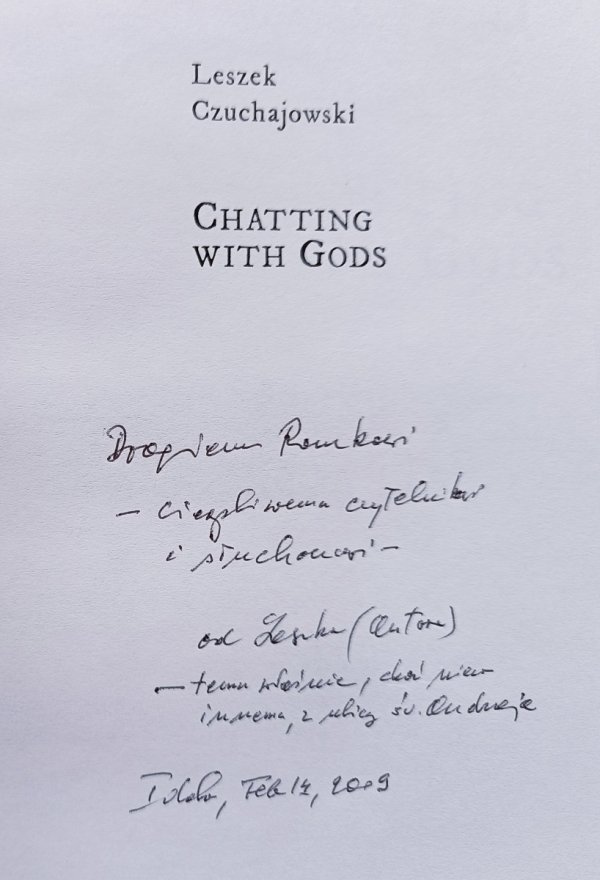 Leszek
Czuchajowski
CHATTING
WITH GODS
Drogiemu Romkowi
– cierpliwemu czytelnikowi
i słuchaczowi –
od Leszka (Autora)
– temu właśnie, choć
innemu, z ulicy św. Andrzeja
Feb 14, 2009